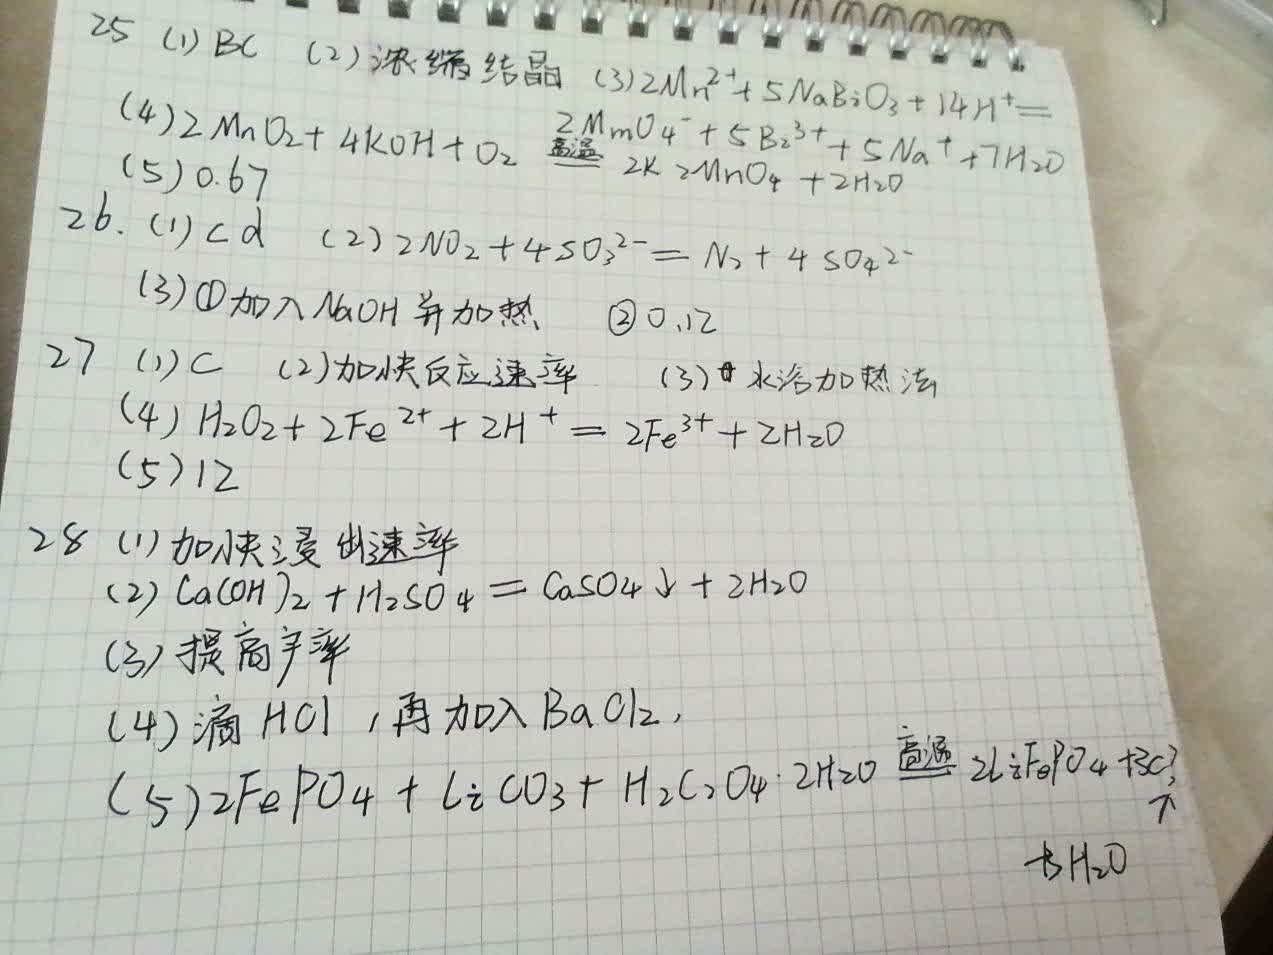 25 (1) BC (2) 浓缩结晶 (3) 2Mn²⁺ + 5NaBiO₃ + 14H⁺ =
2MnO₄⁻ + 5Bi³⁺ + 5Na⁺ + 7H₂O
(4) 2MnO₂ + 4KOH + O₂ 高温 2K₂MnO₄ + 2H₂O
(5) 0.67
26. (1) cd (2) 2NO₂ + 4SO₃²⁻ = N₂ + 4SO₄²⁻
(3) ①加入NaOH并加热 ②0.12
27 (1) C (2) 加快反应速率 (3) 水浴加热法
(4) H₂O₂ + 2Fe²⁺ + 2H⁺ = 2Fe³⁺ + 2H₂O
(5) 12
28 (1) 加快浸出速率
(2) Ca(OH)₂ + H₂SO₄ = CaSO₄↓ + 2H₂O
(3) 提高产率
(4) 滴HCl,再加入BaCl₂,
(5) 2FePO₄ + LiCO₃ + H₂C₂O₄·2H₂O 高温 2LiFePO₄ + 3C
↑
+3H₂O